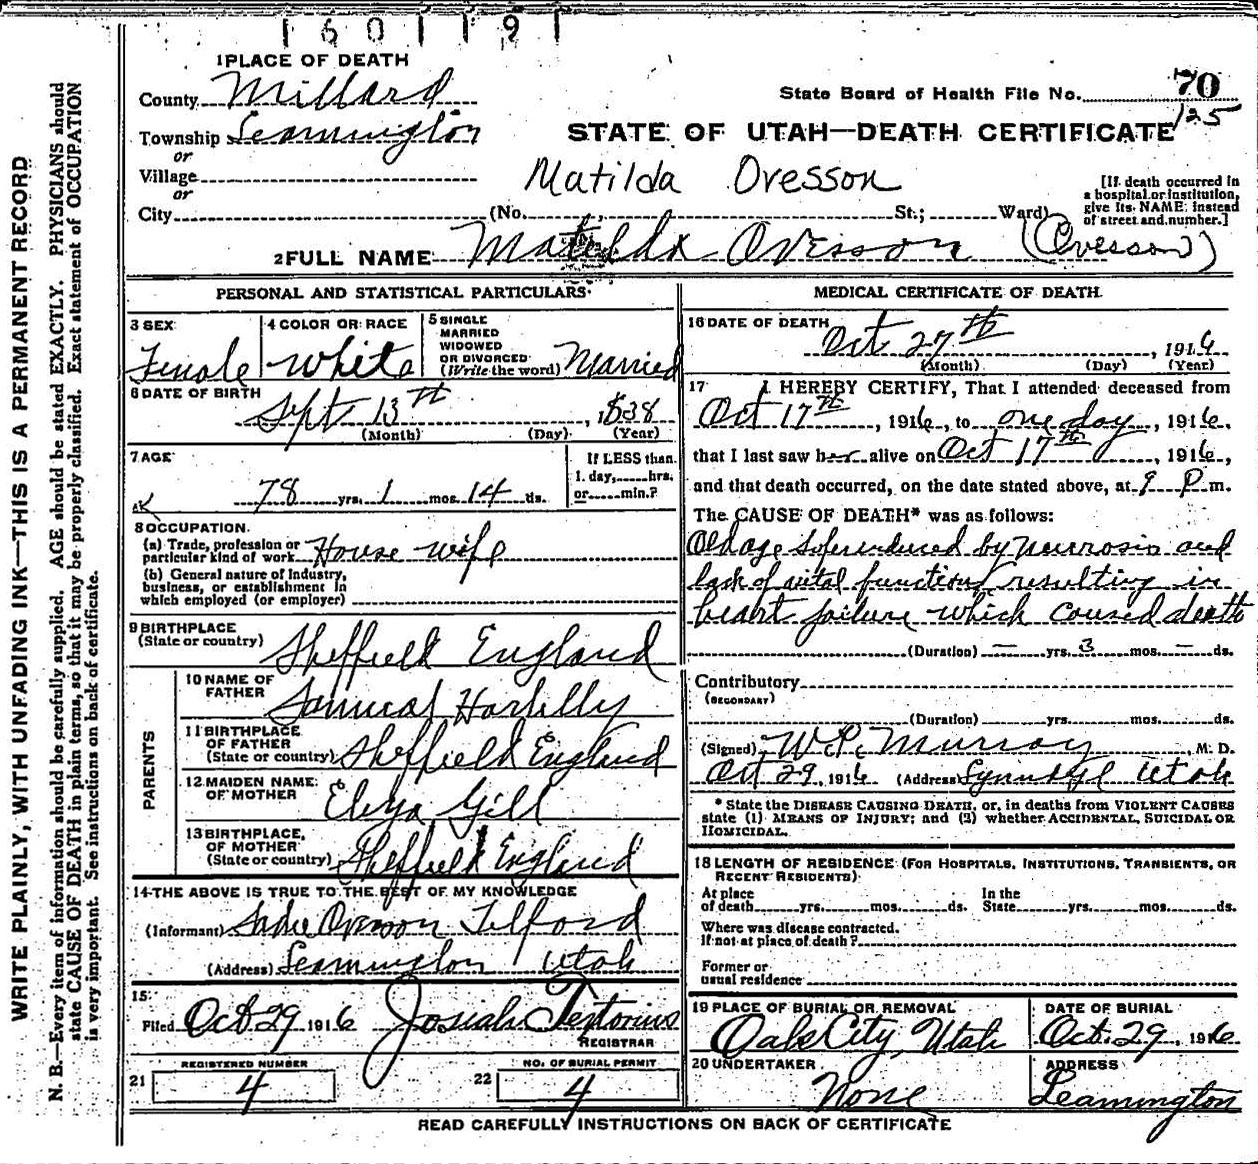 1 6 0 1 1 9 1
1 PLACE OF DEATH
County Millard
Township Leamington
or
Village
or
City
State Board of Health File No. 70
125
STATE OF UTAH—DEATH CERTIFICATE
Matilda Ovesson
(No. , St.; Ward)
[If death occurred in
a hospital or institution,
give its NAME, instead
of street and number.]
2 FULL NAME Matilda Ovesson (Ovesson)
PERSONAL AND STATISTICAL PARTICULARS
3 SEX
Female
4 COLOR OR RACE
White
5 SINGLE
MARRIED
WIDOWED
OR DIVORCED
(Write the word) Married
6 DATE OF BIRTH
Sept 13th , 1838
(Month) (Day) (Year)
7 AGE
78 yrs. 1 mos. 14 ds.
If LESS than
1 day, hrs.
or min.?
8 OCCUPATION
(a) Trade, profession or
particular kind of work House wife
(b) General nature of Industry,
business, or establishment in
which employed (or employer)
9 BIRTHPLACE
(State or country) Sheffield England
PARENTS
10 NAME OF
FATHER
11 BIRTHPLACE
OF FATHER
(State or country) Sheffield England
12 MAIDEN NAME
OF MOTHER Gill
13 BIRTHPLACE
OF MOTHER
(State or country) Sheffield England
14 THE ABOVE IS TRUE TO THE BEST OF MY KNOWLEDGE
(Informant) Telford
(Address) Leamington Utah
15
Filed Oct 29 1916 Josiah Textorius
REGISTRAR
REGISTERED NUMBER
21 4
NO. OF BURIAL PERMIT
22 4
MEDICAL CERTIFICATE OF DEATH
16 DATE OF DEATH
Oct 27th , 1916
(Month) (Day) (Year)
17 I HEREBY CERTIFY, That I attended deceased from
Oct 17th , 1916, to one day , 1916,
that I last saw her alive on Oct 17th , 1916,
and that death occurred, on the date stated above, at 9 P m.
The CAUSE OF DEATH* was as follows:
Old age superinduced by neurosis and
lack of vital functions resulting in
heart failure which caused death
(Duration) — yrs. 3 mos. — ds.
Contributory
(SECONDARY)
(Duration) yrs. mos. ds.
(Signed) W.P. Murray , M. D.
Oct 29, 1916 (Address) Lynndyl Utah
* State the DISEASE CAUSING DEATH, or, in deaths from VIOLENT CAUSES
state (1) MEANS OF INJURY; and (2) whether ACCIDENTAL, SUICIDAL OR
HOMICIDAL.
18 LENGTH OF RESIDENCE (FOR HOSPITALS, INSTITUTIONS, TRANSIENTS, OR
RECENT RESIDENTS)
At place
of death yrs. mos. ds.
In the
State yrs. mos. ds.
Where was disease contracted,
if not at place of death?
Former or
usual residence
19 PLACE OF BURIAL OR REMOVAL
Oak City, Utah
DATE OF BURIAL
Oct. 29, 1916
20 UNDERTAKER
None
ADDRESS
Leamington
READ CAREFULLY INSTRUCTIONS ON BACK OF CERTIFICATE
WRITE PLAINLY, WITH UNFADING INK—THIS IS A PERMANENT RECORD
N. B.—Every item of information should be carefully supplied. AGE should be stated EXACTLY. PHYSICIANS should
state CAUSE OF DEATH in plain terms, so that it may be properly classified. Exact statement of OCCUPATION
is very important. See instructions on back of certificate.